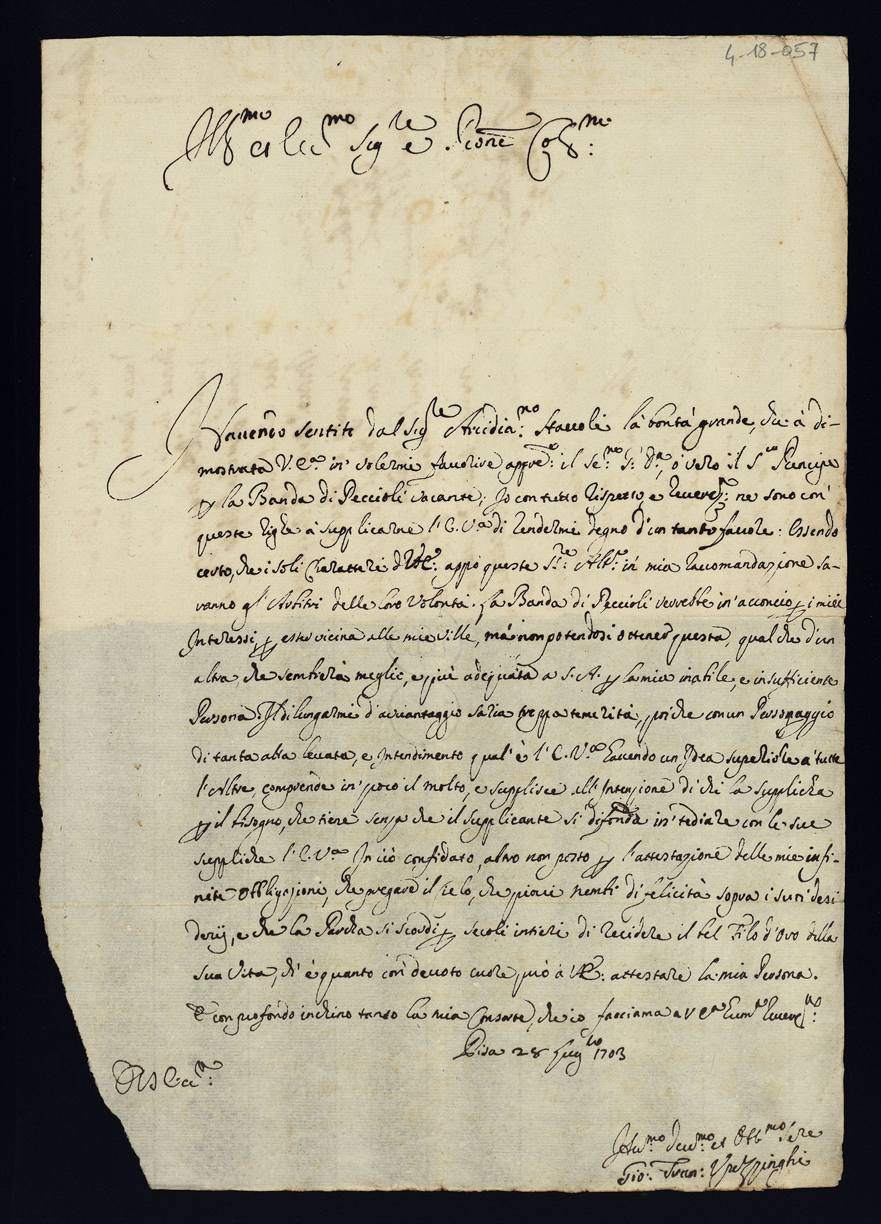 4-18-057
Ill.mo et Ecc.mo Sig.re e P.rone Col.mo:
Havendo sentito dal Sig.re Arcidia:no Stavoli la bontà grande, che à di-
mostrata V.E.za in' volermi favorire appre: il Se:mo G: D:a, ò vero il S.re Principe
p la Banda di Peccioli vacante; Io con tutto rispetto, e reveren: ne sono con'
queste righe à supplicarne l'E. V.za di rendermi degno d'un tanto favore: Essendo
certo, che i soli Charatteri appò queste S.me Alt.e in' mia raccomandazione sa-
ranno gl' Arbitri delle loro Volontà. La Banda di Peccioli verrebbe in' acconcio p i miei
Interessi, p esser vicina alle mie Ville, mà non potendosi ottener questa, qualche d'un
altra, che sembrerà meglio, e più adequata a S. A. p la mia inabile, e insufficiente
Persona. Il dilungarmi d'avvantaggio saria troppa temerità, poiche con un Personaggio
di tanta alta levata, e Intendimento qual' è l'E. V.za havendo un Idea superiore a tutte
l'Altre, comprende in' poco il molto, e supplisce all' Intenzione di chi la supplicha
p il bisogno, che tiene senza che il supplicante si difonda in' tediare con le sue
suppliche l'E. V.za In ciò confidato, altro non posso p l'attestazione delle mie infi-
nite obbligazioni, che pregare il Cielo, che piovi nembi di felicità sopra i suoi desi
derij, e che la Parcha si scordi p secoli intieri di recidere il bel Filo d'Oro della
sua Vita, ch' è quanto con' devoto cuore può à V.E: attestare la mia Persona.
E con profondo inchino tanto la mia Consorte, che io facciamo a V E.za hum.a reveren:
Pisa 28 Lug.lio 1703
D V.S Ecc.ma:
Hu.mo Dev.mo et Obb.mo Se.re
Gio: Fran: Upezzinghi